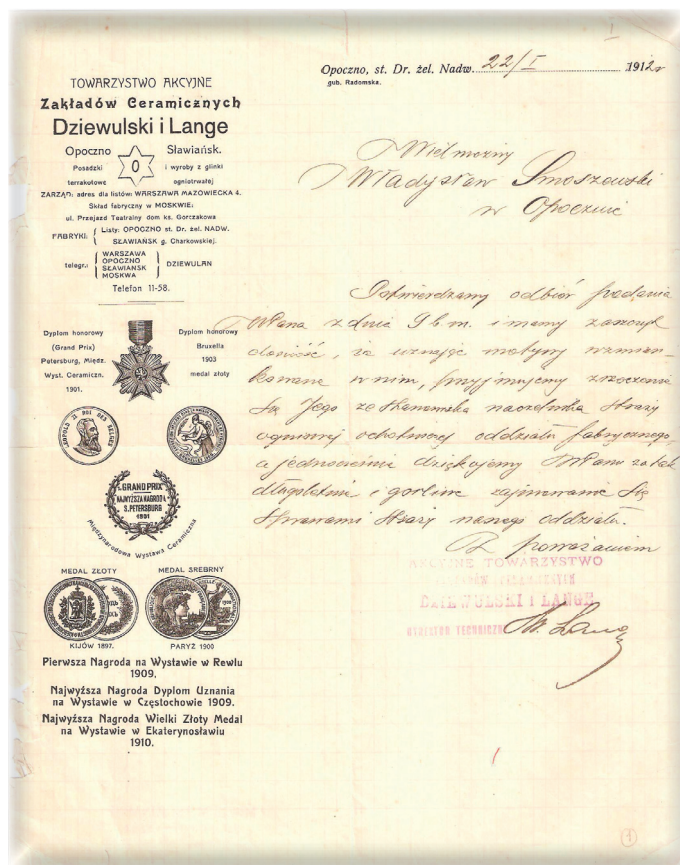 Opoczno, st. Dr. żel. Nadw. 22/I 1912 r
gub. Radomska.
TOWARZYSTWO AKCYJNE
Zakładów Ceramicznych
Dziewulski i Lange
Opoczno O Sławiańsk.
Posadzki i wyroby z glinki
terrakotowe ogniotrwałej
ZARZĄD: adres dla listów: WARSZAWA MAZOWIECKA 4.
Skład fabryczny w MOSKWIE:
ul. Przejazd Teatralny dom ks. Gorczakowa
FABRYKI: Listy: OPOCZNO st. Dr. żel. NADW.
SŁAWIAŃSK g. Charkowskiej.
telegr.: WARSZAWA
OPOCZNO
SŁAWIAŃSK
MOSKWA
DZIEWULAN
Telefon 11-58.
Dyplom honorowy
(Grand Prix)
Petersburg, Międz.
Wyst. Ceramiczn.
1901.
Dyplom honorowy
Bruxella
1903
medal złoty
LEOPOLD II ROI DES BELGES
GRAND PRIX
NAJWYŻSZA NAGRODA
S. PETERSBURG
1901
Międzynarodowa Wystawa Ceramiczna
MEDAL ZŁOTY MEDAL SREBRNY
KIJÓW 1897. PARYŻ 1900
Pierwsza Nagroda na Wystawie w Rewlu
1909.
Najwyższa Nagroda Dyplom Uznania
na Wystawie w Częstochowie 1909.
Najwyższa Nagroda Wielki Złoty Medal
na Wystawie w Ekaterynosławiu
1910.
Wielmożny
Władysław Smoszowski
w Opocznie
Potwierdzamy odbiór podania
WPana z dnia 9 b.m. i mamy zaszczyt
donieść, że uznając motywy wzmian-
kowane w nim, przyjmujemy zrzeczenie
się Jego ze stanowiska naczelnika Straży
ogniowej ochotniczej oddziału fabrycznego,
a jednocześnie dziękujemy WPanu za tak
długoletnie i gorliwe zajmowanie się
sprawami Straży naszego oddziału.
Z poważaniem
AKCYJNE TOWARZYSTWO
ZAKŁADÓW CERAMICZNYCH
DZIEWULSKI I LANGE
DYREKTOR TECHNICZNY
1